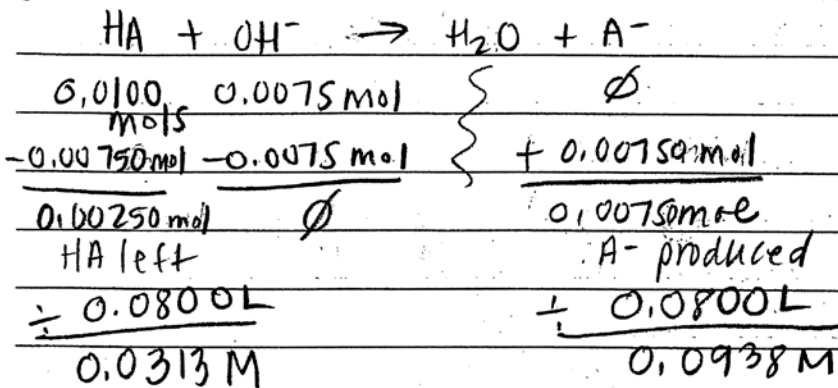 HA + OH⁻ → H₂O + A⁻
0.0100 mols 0.0075 mol ∅
-0.00750 mol -0.0075 mol + 0.00750 mol
0.00250 mol ∅ 0.00750 mol
HA left A⁻ produced
÷ 0.0800L ÷ 0.0800L
0.0313 M 0.0938 M